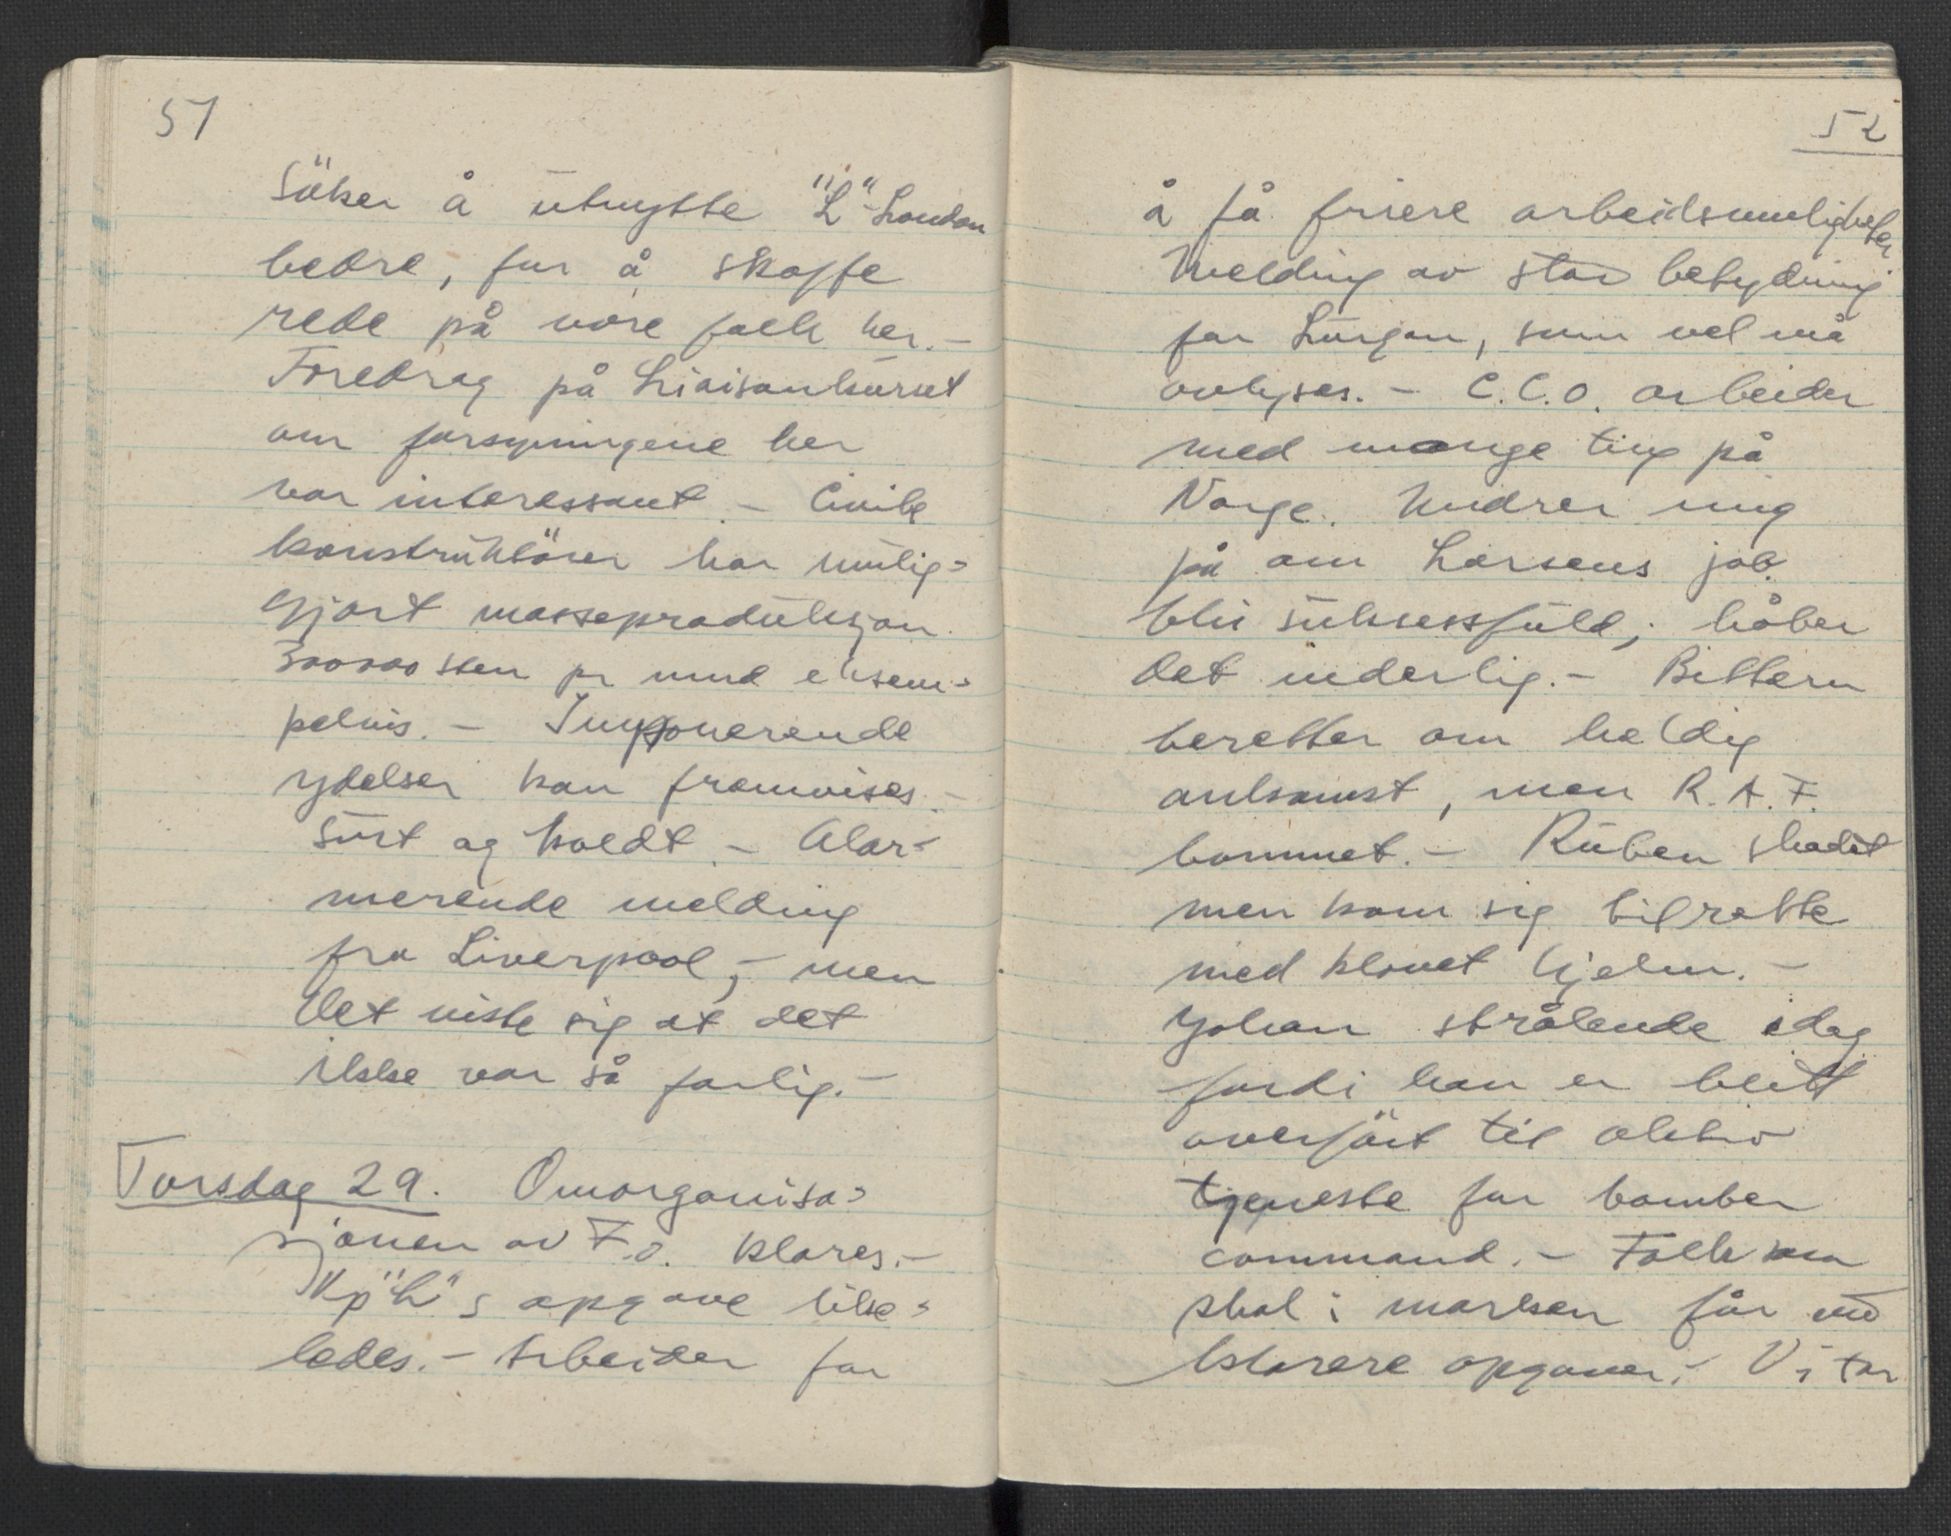 51
Söker å utnytte "L"-London
bedre, for å skaffe
rede på våre folk her. -
Foredrag på Liaisonkurset
om forsyningene her
var interessant. - Civile
konstruktörer har mulig=
gjort masseproduksjon.
300000 sten pr mnd eksem=
pelvis. - Imponerende
ydelser kan fremvises. -
Surt og koldt. - Alar=
merende melding
fra Liverpool, - men
det viste sig at det
ikke var så farlig. -
Torsdag 29. Omorganisa=
sjonen av F.O. klares. -
Kp "L"s opgave tilre=
ledes. - Arbeider for
52
å få friere arbeidsmuligheter
Melding av stor betydning
for Lurgan, som vel må
avlyses. - C.C.O. arbeider
med mange ting på
Norge. Undrer mig
på om Larsens job.
blir suksessfuld; håber
det inderlig. - Bittern
beretter om heldig
ankomst, men R.A.F.
bommet. - Ruben skadet
men kom sig tilrette
med klovet hjelm. -
Johan strålende idag
fordi han er blitt
overfört til aktiv
tjeneste for bomber
command. - Folk som
skal i marken får nu
klarere opgaver. - Vi tar